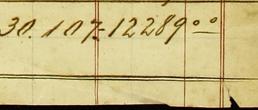 30. 107-12289 00